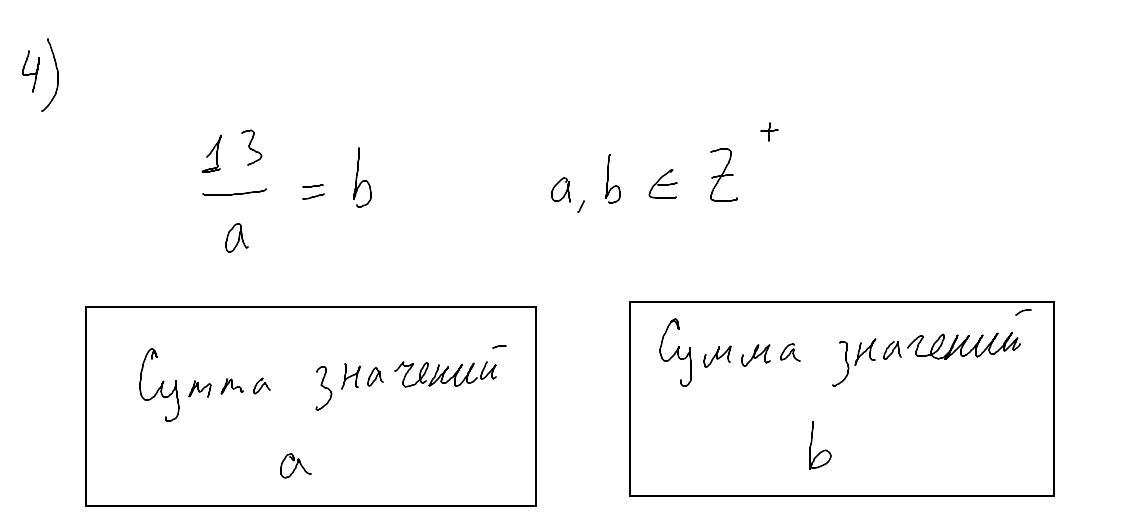 4)
13/a = b a, b ∈ Z⁺
Сумма значений
a
Сумма значений
b